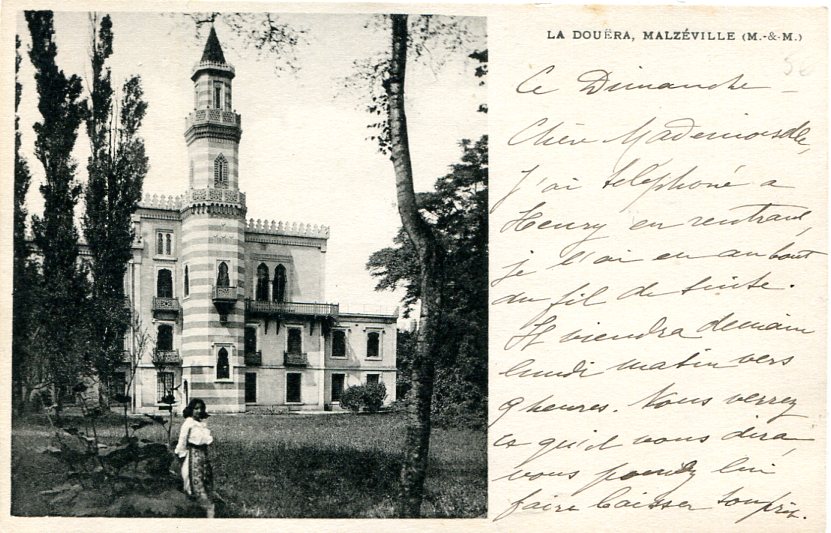 LA DOUËRA, MALZÉVILLE (M.-&-M.)
Ce Dimanche -
Chère Mademoiselle,
J'ai téléphoné a
Henry en rentrant,
je l'ai eu au bout
du fil de suite.
Il viendra demain
lundi matin vers
9 heures. Vous verrez
ce qu'il vous dira,
vous pouvez lui
faire baisser son prix.